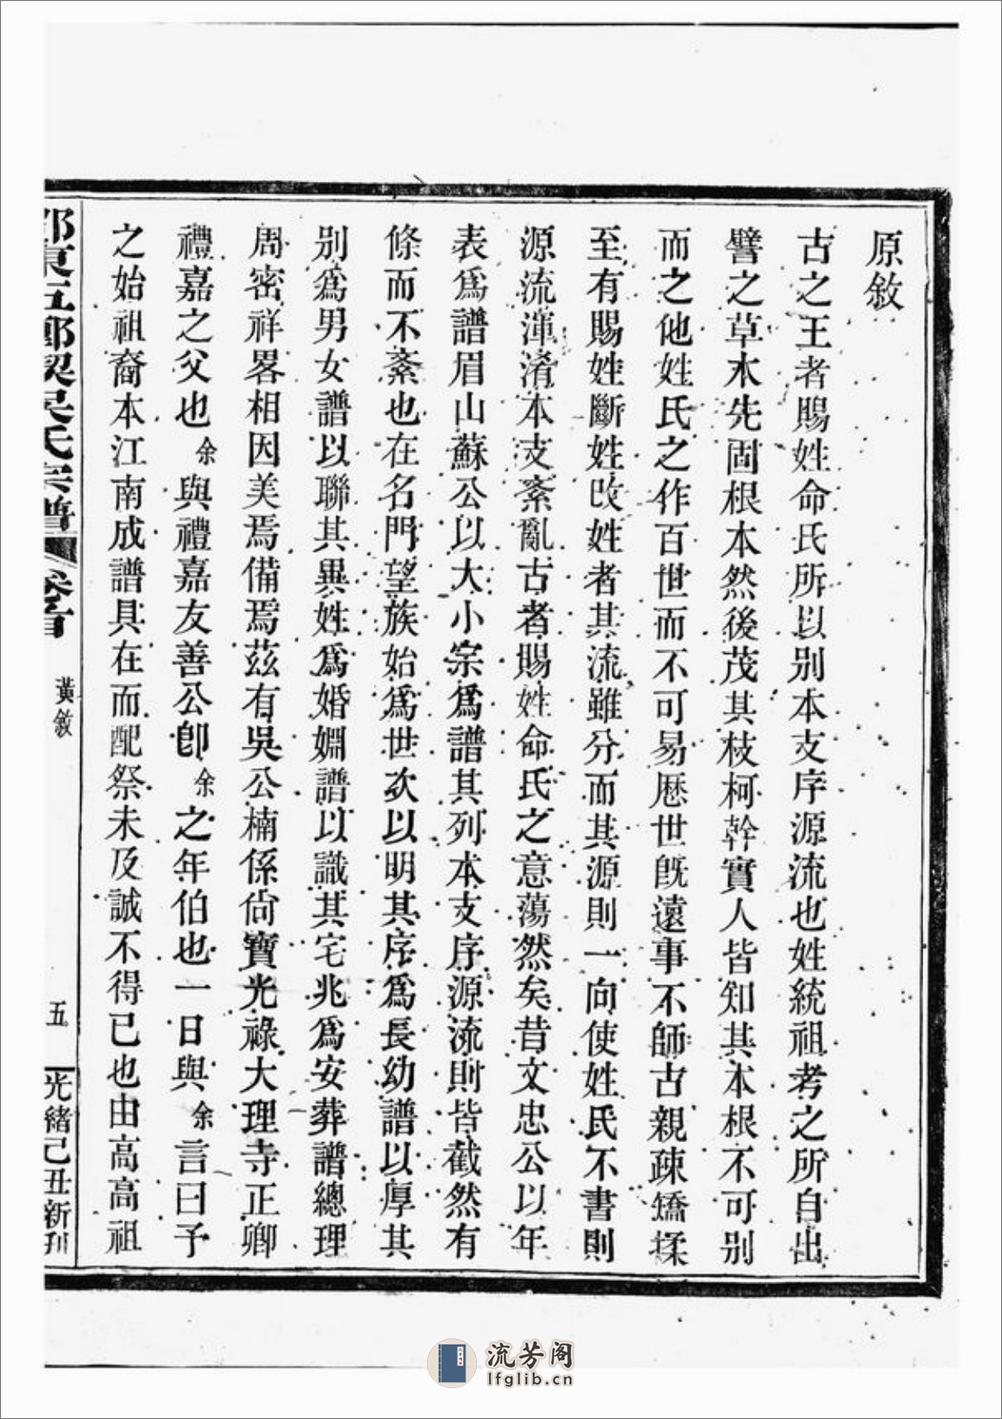 原敘
古之王者賜姓命氏所以别本支序源流也姓統祖考之所自出
譬之草木先固根本然後茂其枝柯幹實人皆知其本根不可别
而之他姓氏之作百世而不可易歷世旣遠事不師古親疎矯揉
至有賜姓斷姓改姓者其流雖分而其源則一向使姓氏不書則
源流渾淆本支紊亂古者賜姓命氏之意蕩然矣昔文忠公以年
表爲譜眉山蘇公以大小宗爲譜其列本支序源流則皆截然有
條而不紊也在名門望族始爲世次以明其序爲長幼譜以厚其
别爲男女譜以聯其異姓爲婚姻譜以識其宅兆爲安葬譜總理
周密祥畧相因美焉備焉茲有吳公楠係尙寶光祿大理寺正卿
禮嘉之父也余與禮嘉友善公卽余之年伯也一日與余言曰予
之始祖裔本江南成譜具在而配祭未及誠不得已也由高高祖
東五鄉契吳氏宗譜
卷首
黃敘
五
光緒己丑新刊
流芳阁
lfglib.cn